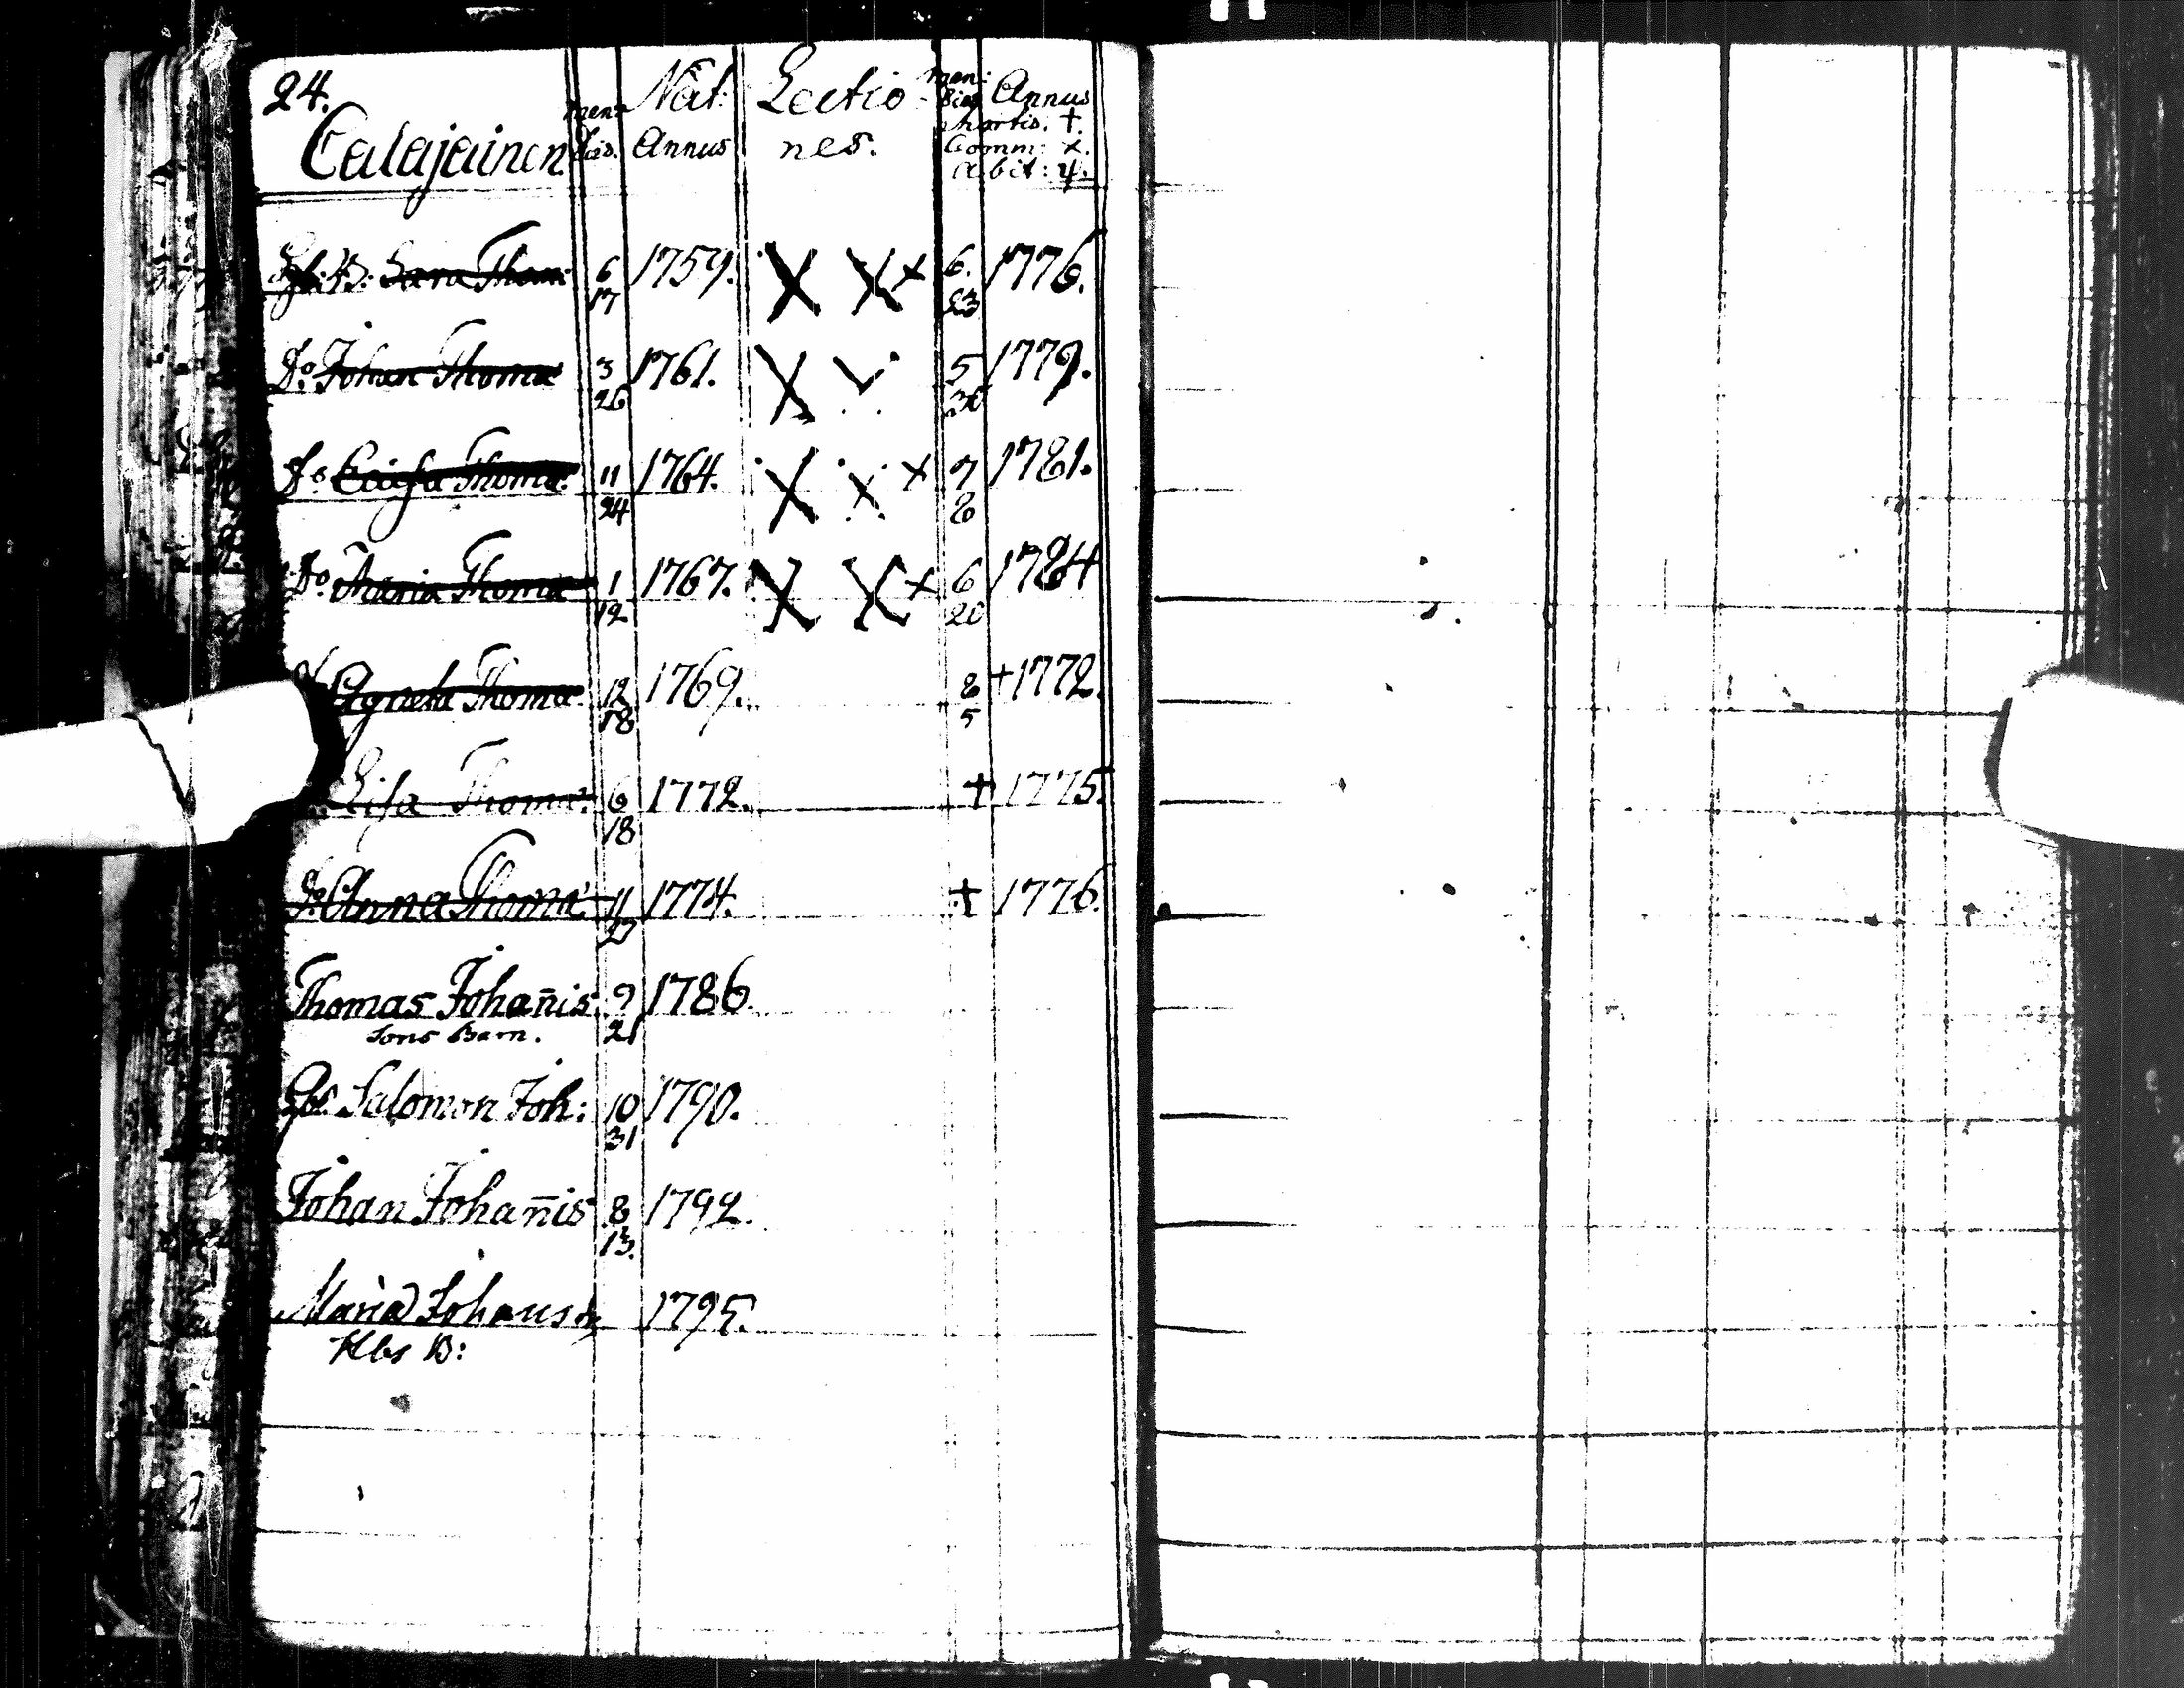 24.
Calajainen
men:
dies.
Nat:
Annus
Lectio
nes.
men:
Dies
Annus
Mortis. †.
Comm: x.
Abit: 4.
B: Sara Thom: 6 17 1759. X X x 6. 23 1776.
Do. Johan Thomæ 3 26 1761. X 5 30 1779.
Do. Caisa Thomæ 11 24 1764. X X x 7 8 1781.
Do. Maria Thomæ 1 12 1767. X X x 6 20 1784
Agneta Thomæ 12 18 1769. 8 5 † 1772.
Lisa Thomæ 6 18 1772. † 1775.
Do. Anna Thomæ 11 27 1774. † 1776.
Thomas Johan̄is 9 21 1786.
Sons Barn.
Salomon Joh: 10 31 1790.
Johan Johan̄is 8 13. 1792.
Maria Johans 1795.
Hbs B: